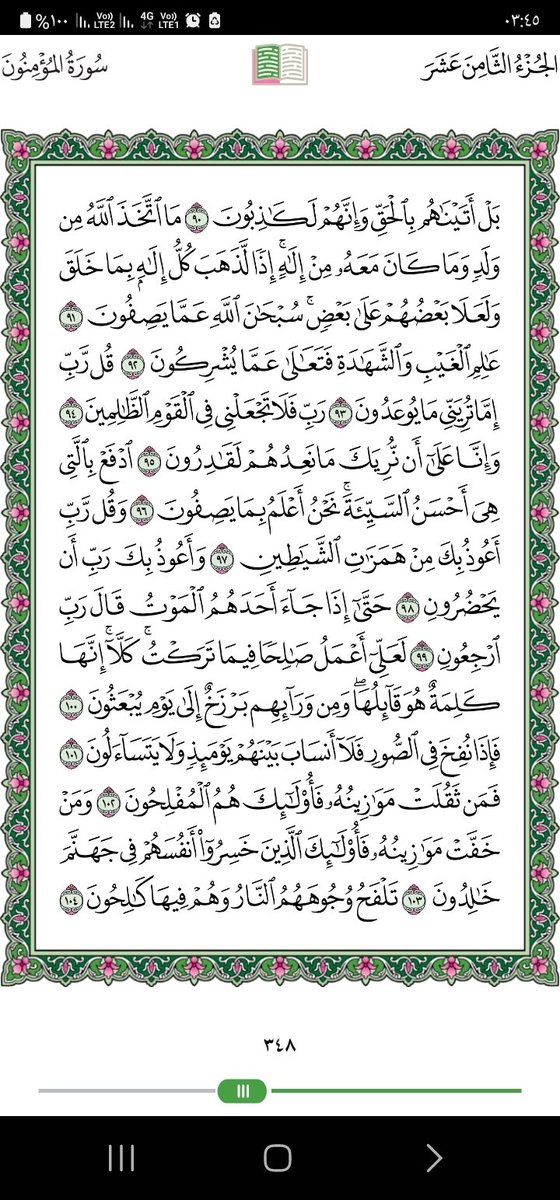 %١٠٠ Vo)) LTE2 4G Vo)) LTE1 ٠٣:٤٥
الجُزْءُ الثَّامِنَ عَشَرَ سُورَةُ المُؤْمِنُونَ
بَلْ أَتَيْنَٰهُم بِٱلْحَقِّ وَإِنَّهُمْ لَكَٰذِبُونَ ٩٠ مَا ٱتَّخَذَ ٱللَّهُ مِن
وَلَدٍ وَمَا كَانَ مَعَهُۥ مِنْ إِلَٰهٍ ۚ إِذًا لَّذَهَبَ كُلُّ إِلَٰهٍۭ بِمَا خَلَقَ
وَلَعَلَا بَعْضُهُمْ عَلَىٰ بَعْضٍ ۚ سُبْحَٰنَ ٱللَّهِ عَمَّا يَصِفُونَ ٩١
عَٰلِمِ ٱلْغَيْبِ وَٱلشَّهَٰدَةِ فَتَعَٰلَىٰ عَمَّا يُشْرِكُونَ ٩٢ قُل رَّبِّ
إِمَّا تُرِيَنِّى مَا يُوعَدُونَ ٩٣ رَبِّ فَلَا تَجْعَلْنِى فِى ٱلْقَوْمِ ٱلظَّٰلِمِينَ ٩٤
وَإِنَّا عَلَىٰٓ أَن نُّرِيَكَ مَا نَعِدُهُمْ لَقَٰدِرُونَ ٩٥ ٱدْفَعْ بِٱلَّتِى
هِىَ أَحْسَنُ ٱلسَّيِّئَةَ ۚ نَحْنُ أَعْلَمُ بِمَا يَصِفُونَ ٩٦ وَقُل رَّبِّ
أَعُوذُ بِكَ مِنْ هَمَزَٰتِ ٱلشَّيَٰطِينِ ٩٧ وَأَعُوذُ بِكَ رَبِّ أَن
يَحْضُرُونِ ٩٨ حَتَّىٰٓ إِذَا جَآءَ أَحَدَهُمُ ٱلْمَوْتُ قَالَ رَبِّ
ٱرْجِعُونِ ٩٩ لَعَلِّىٓ أَعْمَلُ صَٰلِحًا فِيمَا تَرَكْتُ ۚ كَلَّآ ۚ إِنَّهَا
كَلِمَةٌ هُوَ قَآئِلُهَا ۖ وَمِن وَرَآئِهِم بَرْزَخٌ إِلَىٰ يَوْمِ يُبْعَثُونَ ١٠٠
فَإِذَا نُفِخَ فِى ٱلصُّورِ فَلَآ أَنسَابَ بَيْنَهُمْ يَوْمَئِذٍ وَلَا يَتَسَآءَلُونَ ١٠١
فَمَن ثَقُلَتْ مَوَٰزِينُهُۥ فَأُو۟لَٰٓئِكَ هُمُ ٱلْمُفْلِحُونَ ١٠٢ وَمَنْ
خَفَّتْ مَوَٰزِينُهُۥ فَأُو۟لَٰٓئِكَ ٱلَّذِينَ خَسِرُوٓا۟ أَنفُسَهُمْ فِى جَهَنَّمَ
خَٰلِدُونَ ١٠٣ تَلْفَحُ وُجُوهَهُمُ ٱلنَّارُ وَهُمْ فِيهَا كَٰلِحُونَ ١٠٤
٣٤٨